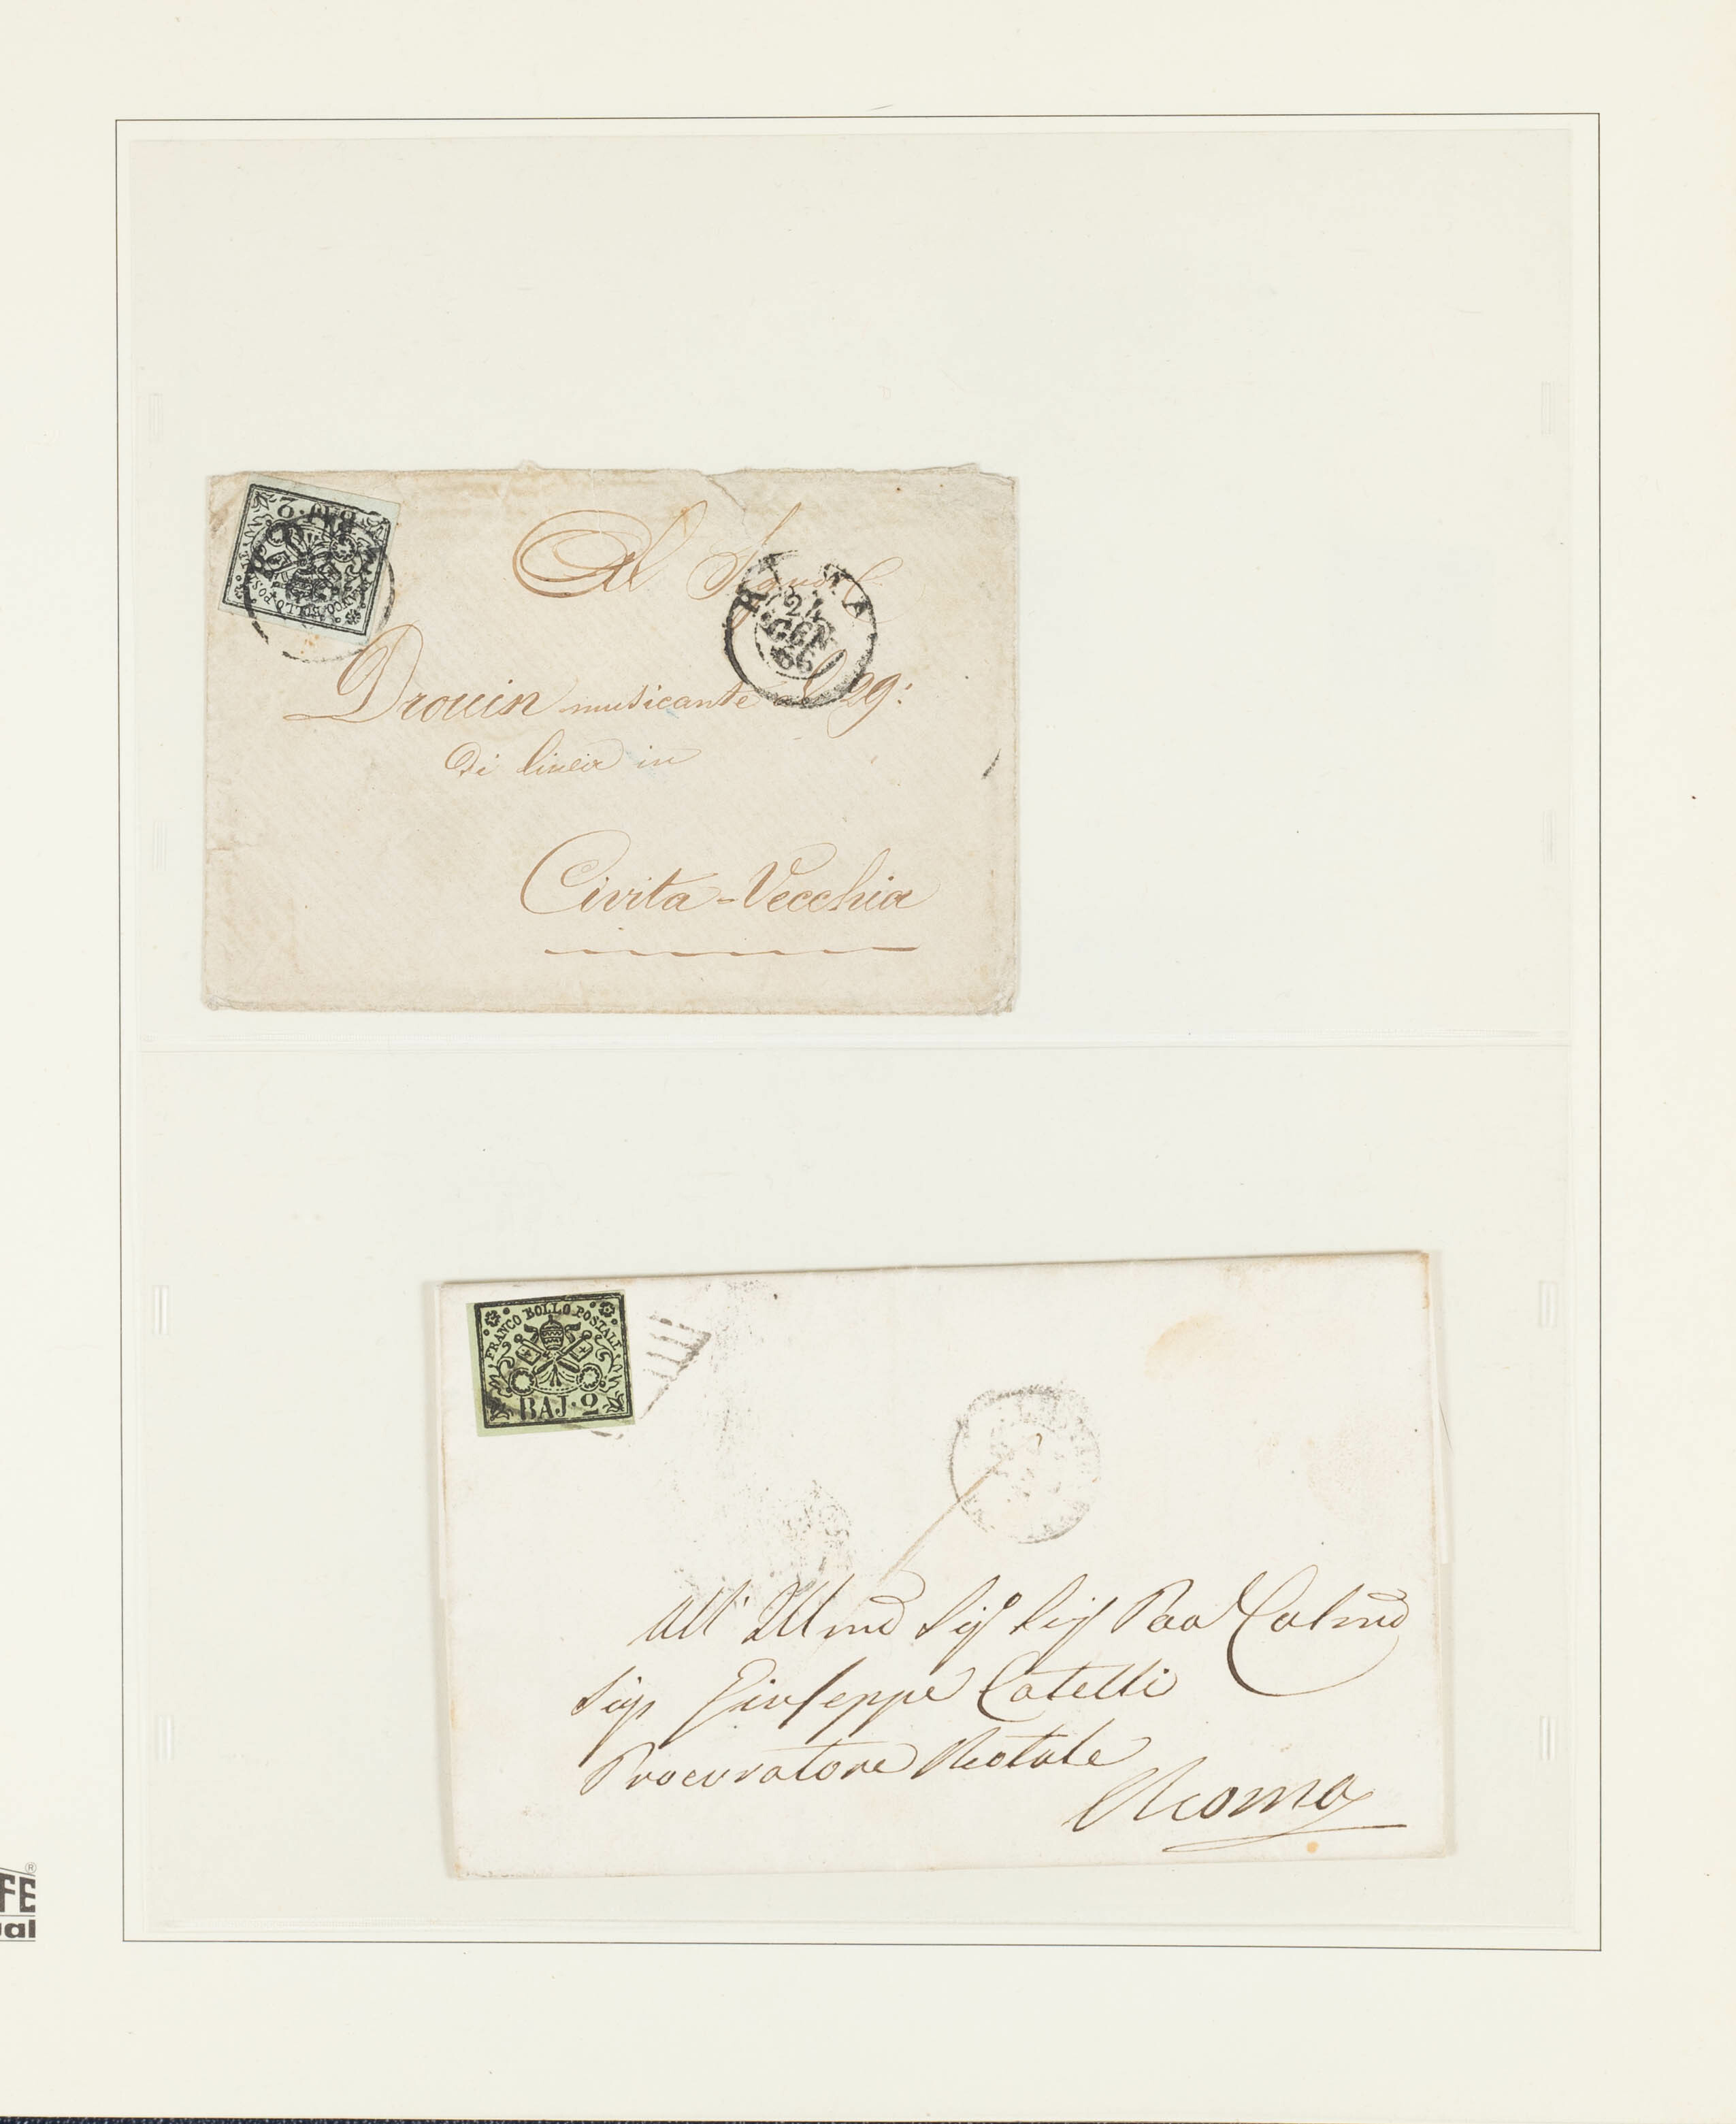 BAJ·2
FRANCO BOLLO POSTALE
Al Signore
ROMA
24
GEN
66
Drouin musicante al 29:
di linea in
Civita-Vecchia
FRANCO BOLLO POSTALE
BAJ·2
All' Illmo Sig Sig Pao Colmo
Sigr Giuseppe Catelli
Procuratore Rotale
Roma
FE®
ual